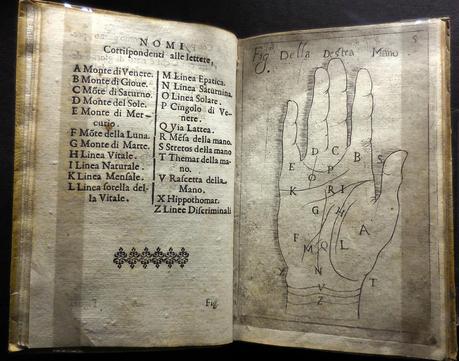 NOMI
Corrispondenti alle lettere,
A Monte di Venere.
B Monte di Gioue.
C Mõte di Saturno.
D Monte del Sole.
E Monte di Mer-
curio.
F Mõte della Luna.
G Monte di Marte.
H Linea Vitale.
I Linea Naturale.
K Linea Mensale.
L Linea sorella del-
la Vitale.
M Linea Epatica.
N Linea Saturnina.
O Linea Solare.
P Cingolo di Ve-
nere.
Q Via Lattea.
R Mésa della mano.
S Stretos della mano
T Themar della ma-
no.
V Rascetta della
Mano.
X Hippothomar.
Z Linee Discriminali
Fig.
Fig.a Della Destra Mano
5
D C
E O B S
P
K R I
G H
A
F M Q L
X N T
V
Z